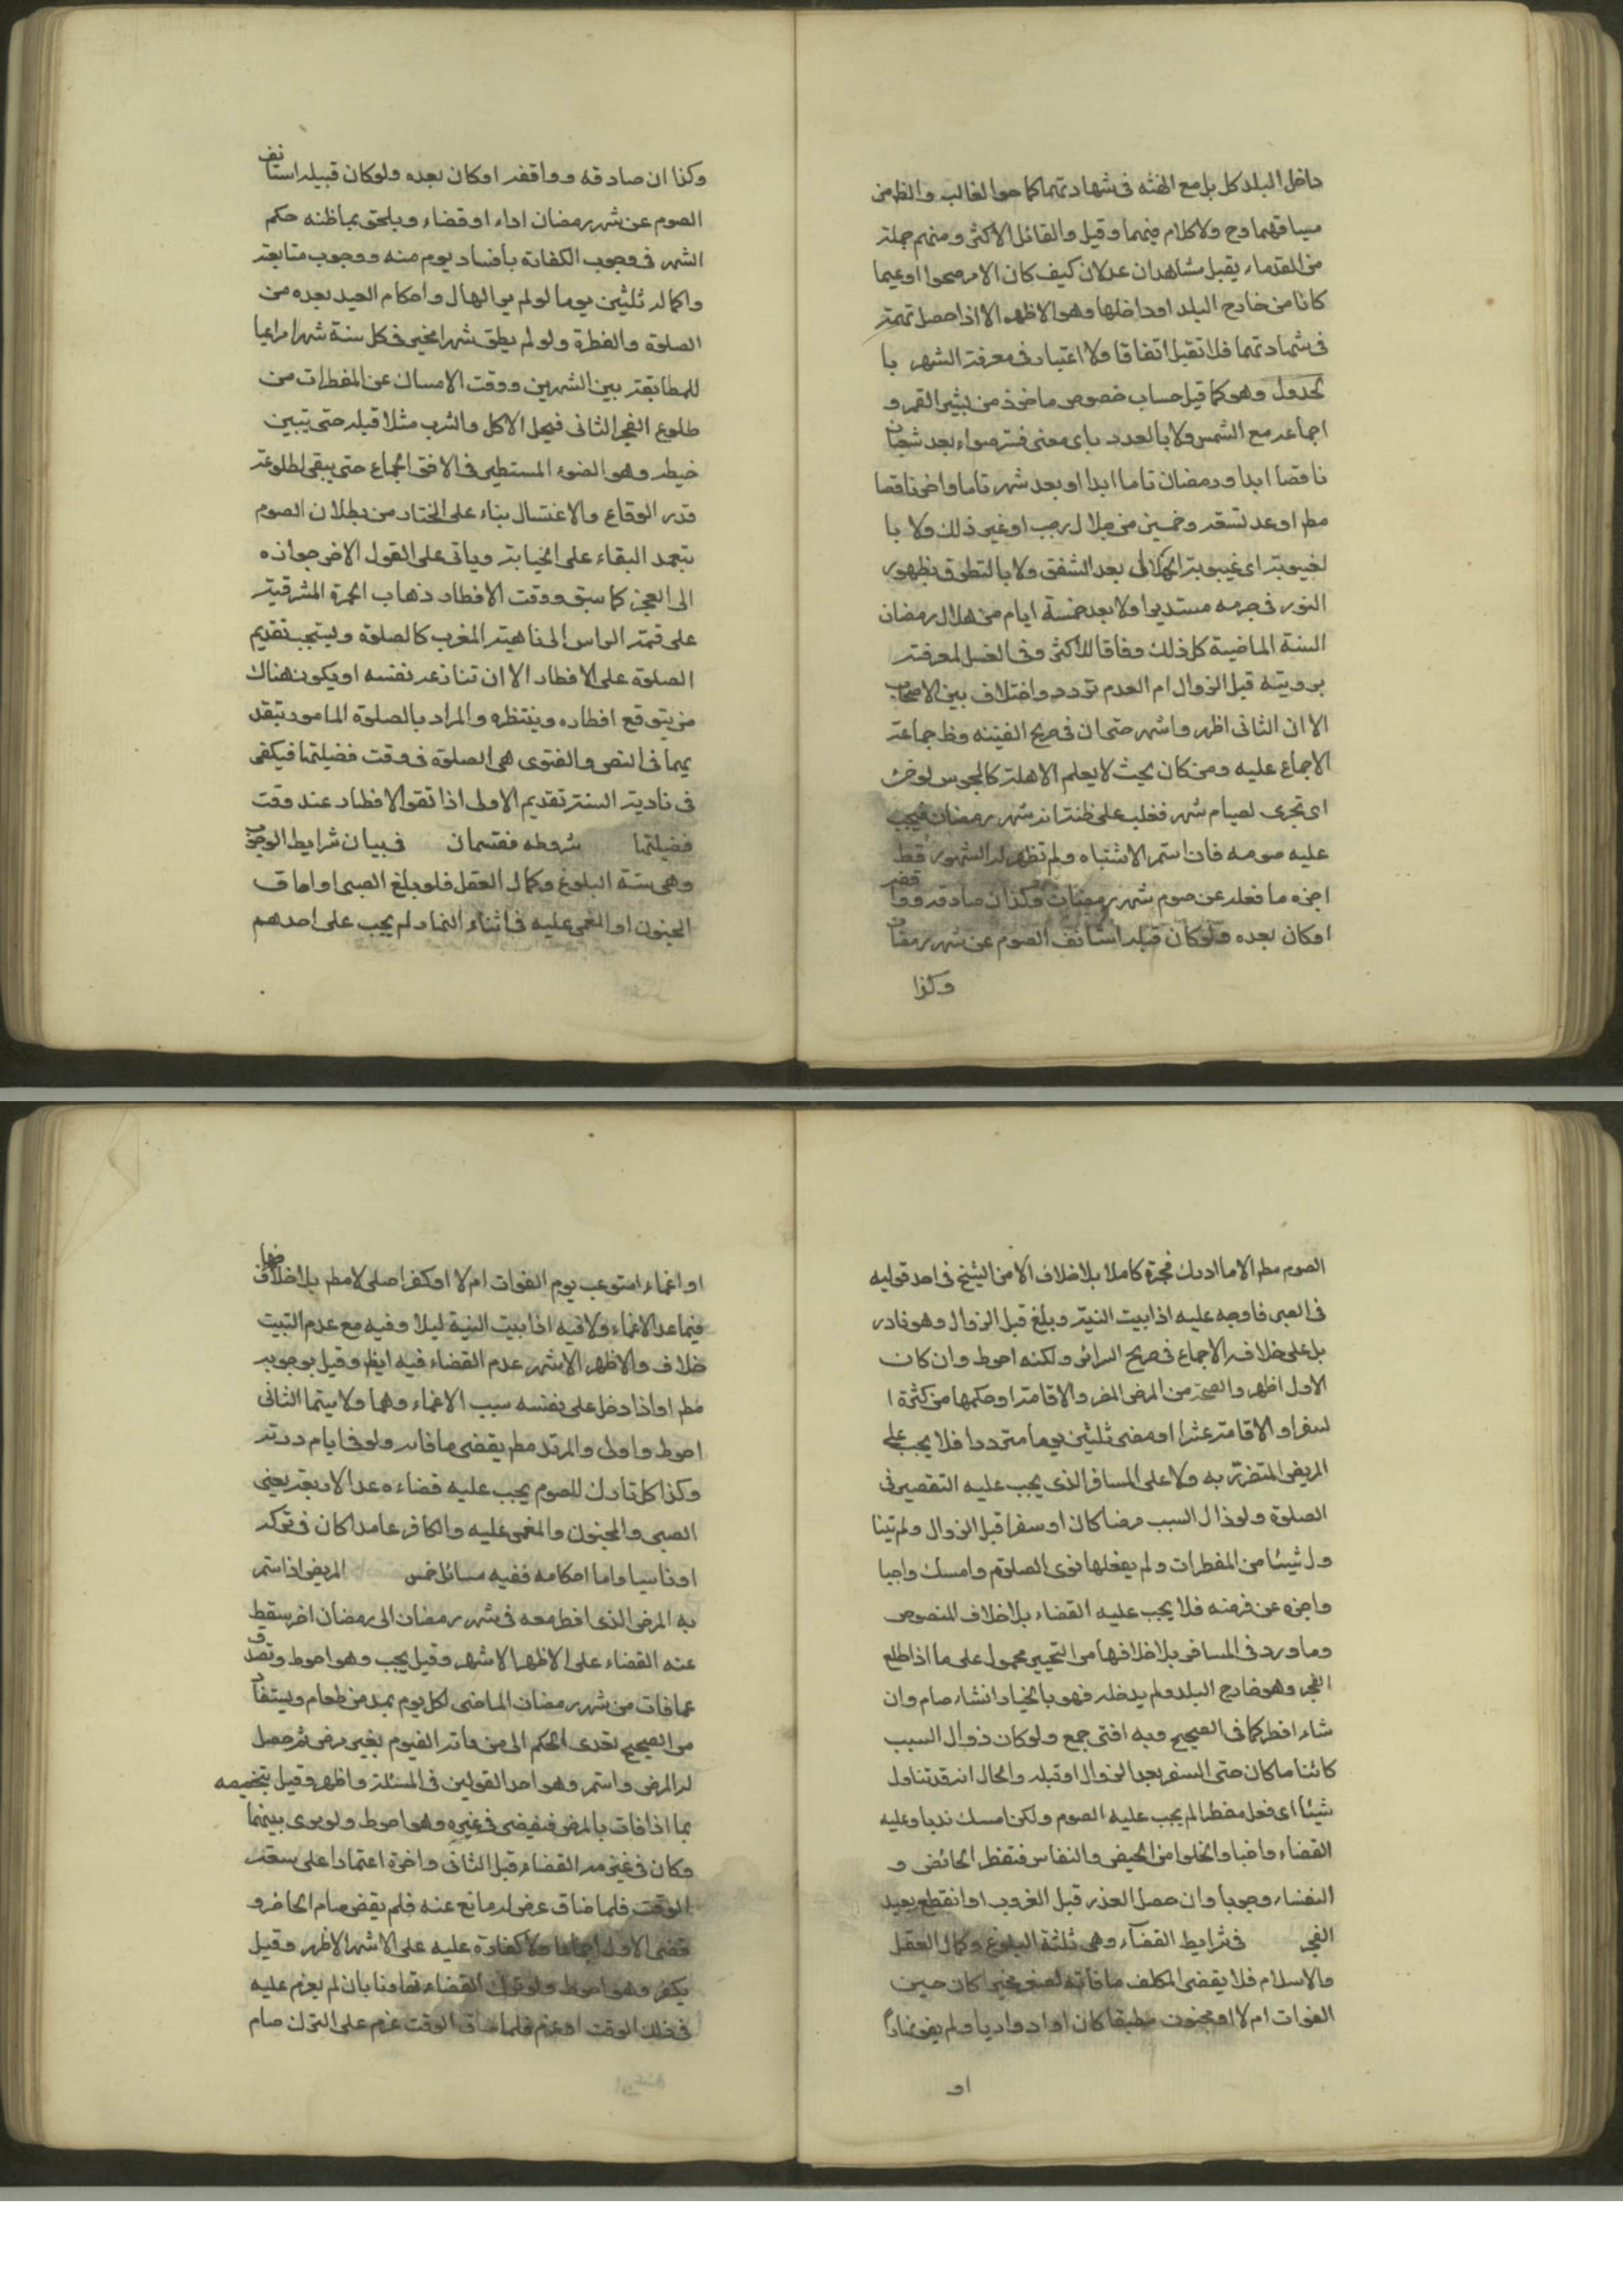 داخل البلد كل بل مع الهثه فى شهادتهما كما هو الغالب والظ من
مساقهما وح ولا كلام فيهما وقيل والقائل الاكثر ومنهم جملة
من القدماء يقبل مشاهدان عدلان كيف كان الامر صحوا او غيما
كانا من خارج البلد او داخلها وهو الاظهر الا اذا حصل تهمة
فى شهادتهما فلا تقبل اتفاقا ولا اعتبار فى معرفة الشهر با
لجدول وهو كما قيل حساب خصوص ماخوذ من سير القمر و
اجماعه مع الشمس ولا بالعدد باى معنى فسر سواء بعد شعبان
ناقصا ابدا ورمضان تاما ابدا او بعد شهر تاما واخر ناقصا
مطر او عد تسعة وخمسين من هلال رجب او غير ذلك ولا با
لغيبوبة اى غيبوبة الهلال بعد الشفق ولا بالتطوق بظهور
النور فى جرمه مستديرا ولا بعد خمسة ايام من هلال رمضان
السنة الماضية كل ذلك وفاقا للاكثر وفى العمل لمعرفته
برويته قبل الزوال ام العدم تردد واختلاف بين الاصحاب
الا ان الثانى اظهر واشهر حتى ان فى صريح الغنيه وظ جماعة
الاجماع عليه ومن كان بحيث لا يعلم الاهلة كالمحبوس توخى
اى تحرى لصيام شهر فغلب على ظنه انه شهر رمضان فيجب
عليه صومه فان استمر الاشتباه ولم تظهر له الشهور قط
اجزه ما فعله عن صوم شهر رمضان وكذا ان صادقه ووافقه
او كان بعده ولو كان قبله استانف الصوم عن شهر رمضان
وكذا
وكذا ان صادقه ووافقه او كان بعده ولو كان قبيله استانف
الصوم عن شهر رمضان اداء او قضاء ويلحق بما ظنه حكم
الشهر فى وجوب الكفارة بافساد يوم منه ووجوب متابعة
واكماله ثلثين يوما لو لم ير الهلال واحكام العيد بعده من
الصلوة والفطرة ولو لم يظن شهرا تخير فى كل سنة شهرا مراعيا
للمطابقة بين الشهرين ووقت الامساك عن المفطرات من
طلوع الفجر الثانى فيحل الاكل والشرب مثلا قبله حتى يتبين
خيطه وهو الضوء المستطير فى الافق الجماع حتى يبقى لطلوعه
قدر الوقاع والاغتسال بناء على المختار من بطلان الصوم
بتعمد البقاء على الجنابة وياتى على القول الاخر جوازه
الى الفجر كما سبق ووقت الافطار ذهاب الحمرة المشرقية
على قمة الراس الى ناحية المغرب كالصلوة ويستحب تقديم
الصلوة على الافطار الا ان تنازعه نفسه او يكون هناك
من يتوقع افطاره وينتظره والمراد بالصلوة المامور تبقد
يمها فى النص والفتوى هى الصلوة فى وقت فضيلتها فيكفى
فى تادية السنة تقديم الاولى اذا تقو الافطار عند وقت
فضيلتها شروطه فقسمان فى بيان شرايط الوجوب
وهى ستة البلوغ وكمال العقل فلو بلغ الصبى او افاق
المجنون او المغمى عليه فى اثناء النهار لم يجب على احدهم
الصوم مطر الا ما ادرك فجره كاملا بلا خلاف الا من الشيخ فى احد قوليه
فى الصبى فاوجبه عليه اذا بيت النية وبلغ قبل الزوال وهو نادر
بل على خلافه الاجماع فى صريح السرائر ولكنه احوط وان كان
الاول اظهر والصحة من المرض المضر والاقامة او حكمها من كثرة ا
لسفر او الاقامة عشرا او مضى ثلثين يوما مترددا فلا يجب على
المريض المتضرر به ولا على المسافر الذى يجب عليه التقصير فى
الصلوة ولو زال السبب مرضا كان او سفرا قبل الزوال ولم يتنا
ول شيئا من المفطرات ولم يفعلها نوى الصلوم وامسك واجبا
واجزه عن فرضه فلا يجب عليه القضاء بلا خلاف للنصوص
وما ورد فى المسافر بلا خلافها من التخيير محمول على ما اذا طلع
الفجر وهو خارج البلد ولم يدخله فهو بالخيار انشاء صام وان
شاء افطر كما فى الصحيح وبه افتى جمع ولو كان زوال السبب
كائنا ما كان حتى السفر بعد الزوال او قبله والحال انه قد تناول
شيئا اى فعل مفطرا لم يجب عليه الصوم ولكن امسك ندبا وعليه
القضاء واجبا والخلو من الحيض والنفاس فتفطر الحائض و
النفساء وجوبا وان حصل العذر قبل الغروب او انقطع بعيد
الفجر فى شرايط القضاء وهى ثلثة البلوغ وكمال العقل
والاسلام فلا يقضى المكلف ما فاته لصغر مميزا كان حين
الفوات ام لا او مجنون مطبقا كان او ادواريا ولم يفق نهارا
او
او اغماء استوعب يوم الفوات ام لا او كفر اصلى لا مطر بلا خلاف
فيما عدا الاغماء ولا فيه اذا بيت النية ليلا وفيه مع عدم التبيت
خلاف والاظهر الاشهر عدم القضاء فيه ايظر وقيل بوجوبه
مطر او اذا دخل على نفسه سبب الاغماء وهما ولا سيما الثانى
احوط واولى والمرتد مطر يقضى ما فاته ولو فى ايام ردته
وكذا كل تارك للصوم يجب عليه قضاءه عدا الاربعة يعنى
الصبى والمجنون والمغمى عليه والكافر عامدا كان فى تركه
او ناسيا واما احكامه ففيه مسائل خمس المريض اذا استمر
به المرض الذى افطر معه فى شهر رمضان الى رمضان اخر سقط
عنه القضاء على الاظهر الاشهر وقيل يجب وهو احوط وتصدق
عما فات من شهر رمضان الماضى لكل يوم بمد من طعام ويستفاد
من الصحيح تعدى الحكم الى من فاته الصوم بغير مرض ثم حصل
له المرض واستمر وهو احد القولين فى المسئلة واظهر وقيل بتخصيصه
بما اذا فات بالمرض فيقضى فى غيره وهو احوط ولو برى بينهما
وكان فى عزمه القضاء قبل الثانى واخره اعتمادا على سعة
الوقت فلما ضاق عرض له مانع عنه فلم يقض صام الحاضر و
قضى الاول اجماعا ولا كفارة عليه على الاشهر الاظهر وقيل
يكفر وهو احوط ولو ترك القضاء تهاونا بان لم يعزم عليه
فى ذلك الوقت او عزم فلما ضاق الوقت عزم على الترك صام